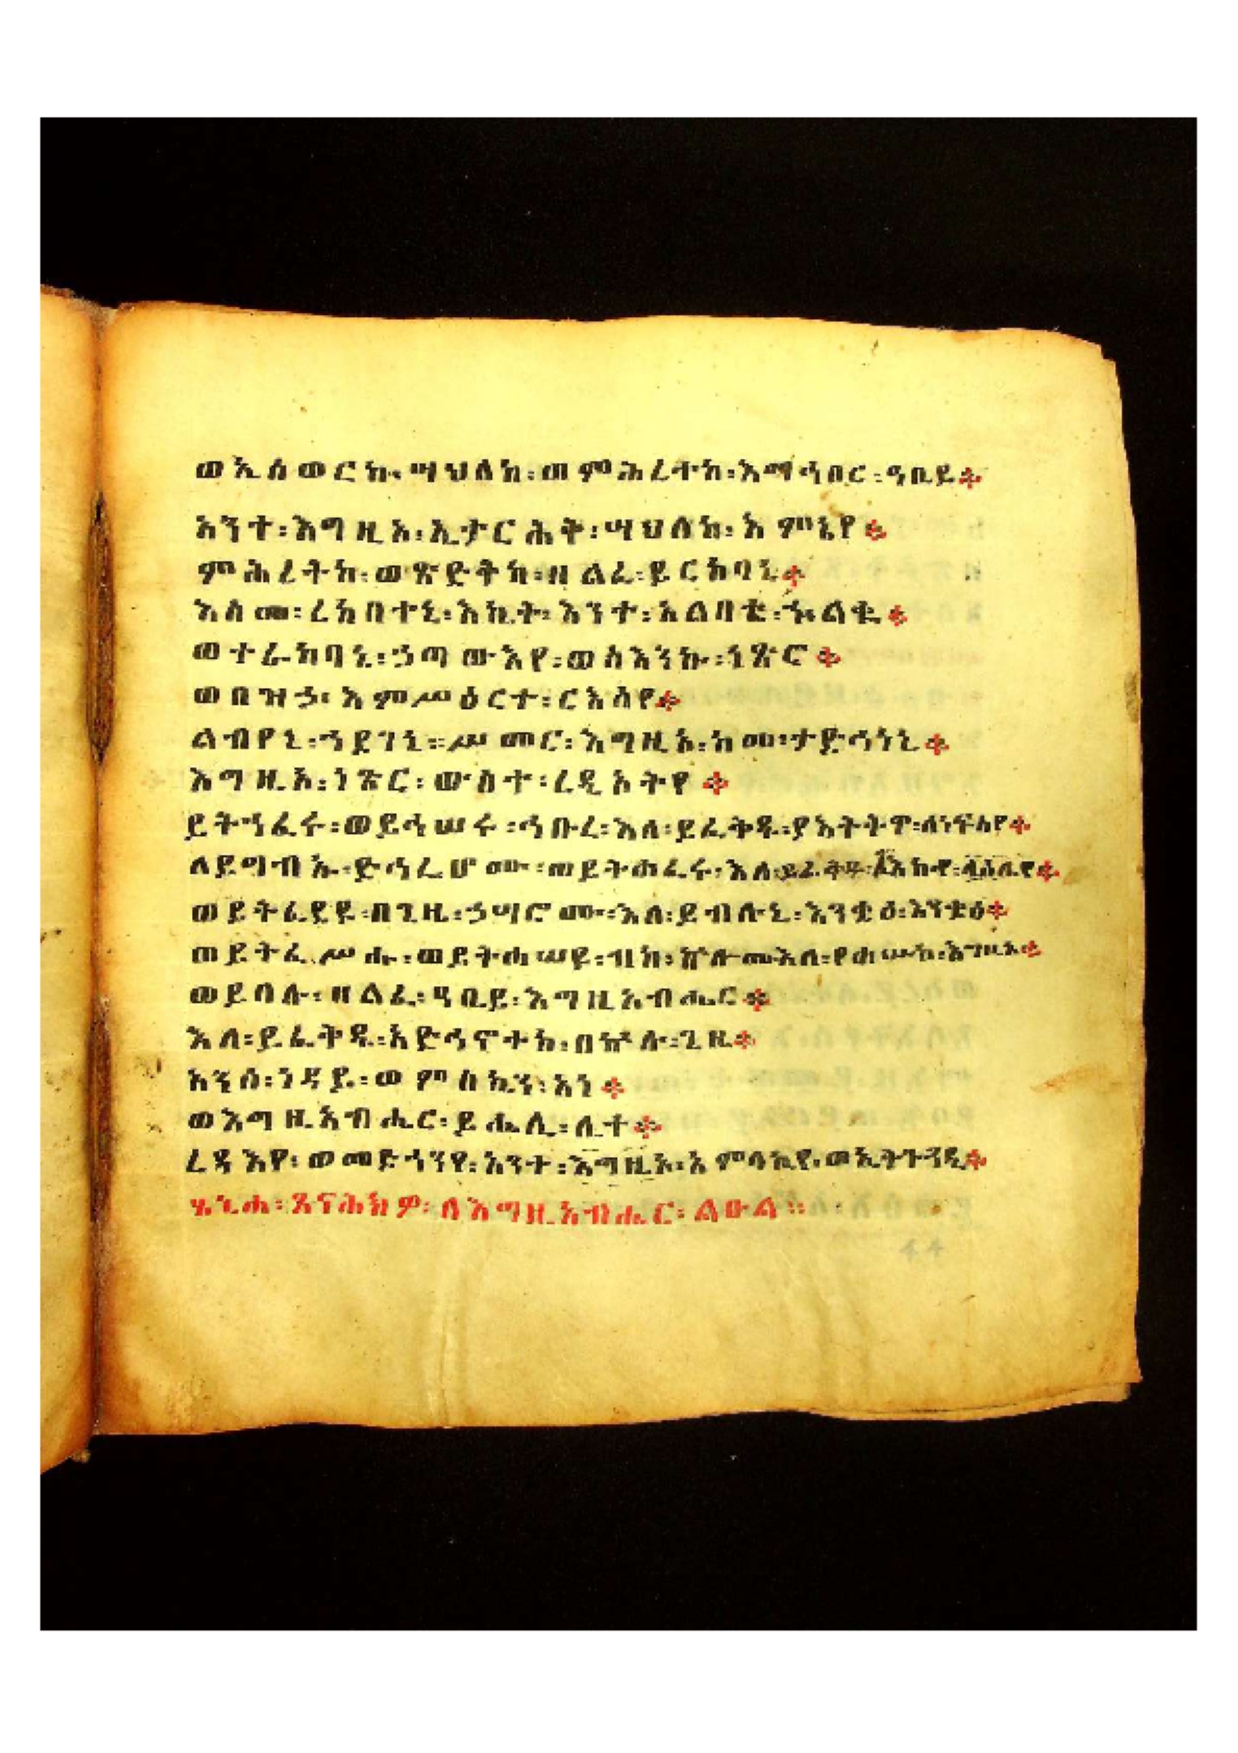 ወኢሰወርኩ፡ሣህለከ፡ወምሕረተከ፡እማኅበር፡ዓቢይ፨
አንተ፡እግዚኦ፡ኢታርሕቅ፡ሣህለከ፡እምኔየ፨
ምሕረትከ፡ወጽድቅከ፡ዘልፈ፡ይርከባኒ፨
እስመ፡ረከበተኒ፡እኪት፡እንተ፡አልባቲ፡ኍልቈ፨
ወተራከባኒ፡ኃጣውእየ፡ወስእንኩ፡ነጽሮ፨
ወበዝኃ፡እምሥዕርተ፡ርእስየ፨
ልብየኒ፡ኀደገኒ፡፡ሥመር፡እግዚኦ፡ከመ፡ታድኅነኒ፨
እግዚኦ፡ነጽር፡ውስተ፡ረዲኦትየ፨
ይትኀፈሩ፡ወይኀሠሩ፡ኅቡረ፡እለ፡ይፈቅዱ፡ያእትትዋ፡ለነፍስየ፨
ለይግብኡ፡ድኅሬሆሙ፡ወይትሐፈሩ፡እለ፡ይፈቅዱ፡እኩየ፡ላዕሌየ፨
ወይትፈደዩ፡በጊዜ፡ኃሣሮሙ፡እለ፡ይብሉኒ፡እንቋዕ፡እንቋዕ፨
ወይትፈሥሑ፡ወይትሐሠዩ፡ብከ፡ኵሎሙ፡እለ፡የሐሡከ፡እግዚኦ፨
ወይበሉ፡ዘልፈ፡ዓቢይ፡እግዚአብሔር፨
እለ፡ይፈቅዱ፡አድኅኖተከ፡በኵሉ፡ጊዜ፨
አንሰ፡ነዳይ፡ወምስኪን፡አነ፨
ወእግዚአብሔር፡ይሔሊ፡ሊተ፨
ረዳእየ፡ወመድኀንየ፡አንተ፡እግዚኦ፡አምላኪየ፡ወኢትጐንዲ፨
ጸናሕክዎ፡ለእግዚአብሔር፡ልዑል፡፡